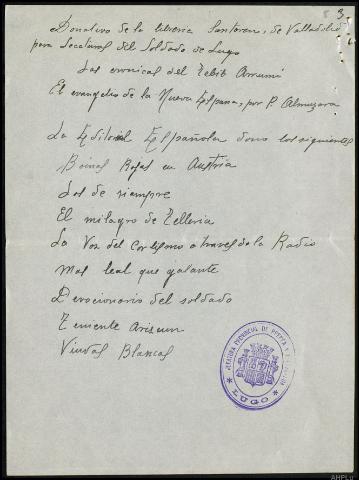 3
Donativo de la libreria Santaren, de Valladolid
para Lecturas del Soldado de Lugo
Las cronicas del Tebib Arrumi
El evangelio de la Nueva España, por P. Almuzara
La Editorial Española dono los siguientes
Boinas Rojas en Austria
Los de siempre
El milagro de Telleria
La Voz del Carlismo a traves de la Radio
Mas leal que galante
Devocionario del soldado
Teniente Arizcun
Viudas Blancas
JEFATURA PROVINCIAL DE PRENSA Y PROPAGANDA
* LUGO *
AHPLu